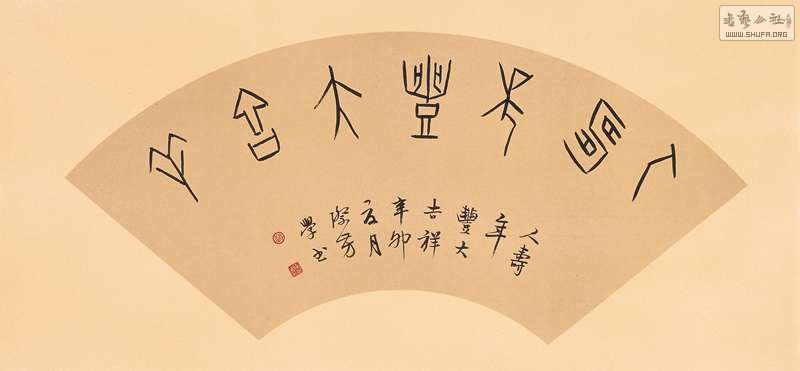 人壽年豐大吉祥
人壽
年
豐大
吉祥
辛卯
夏月
學書
书艺公社
WWW.SHUFA.ORG